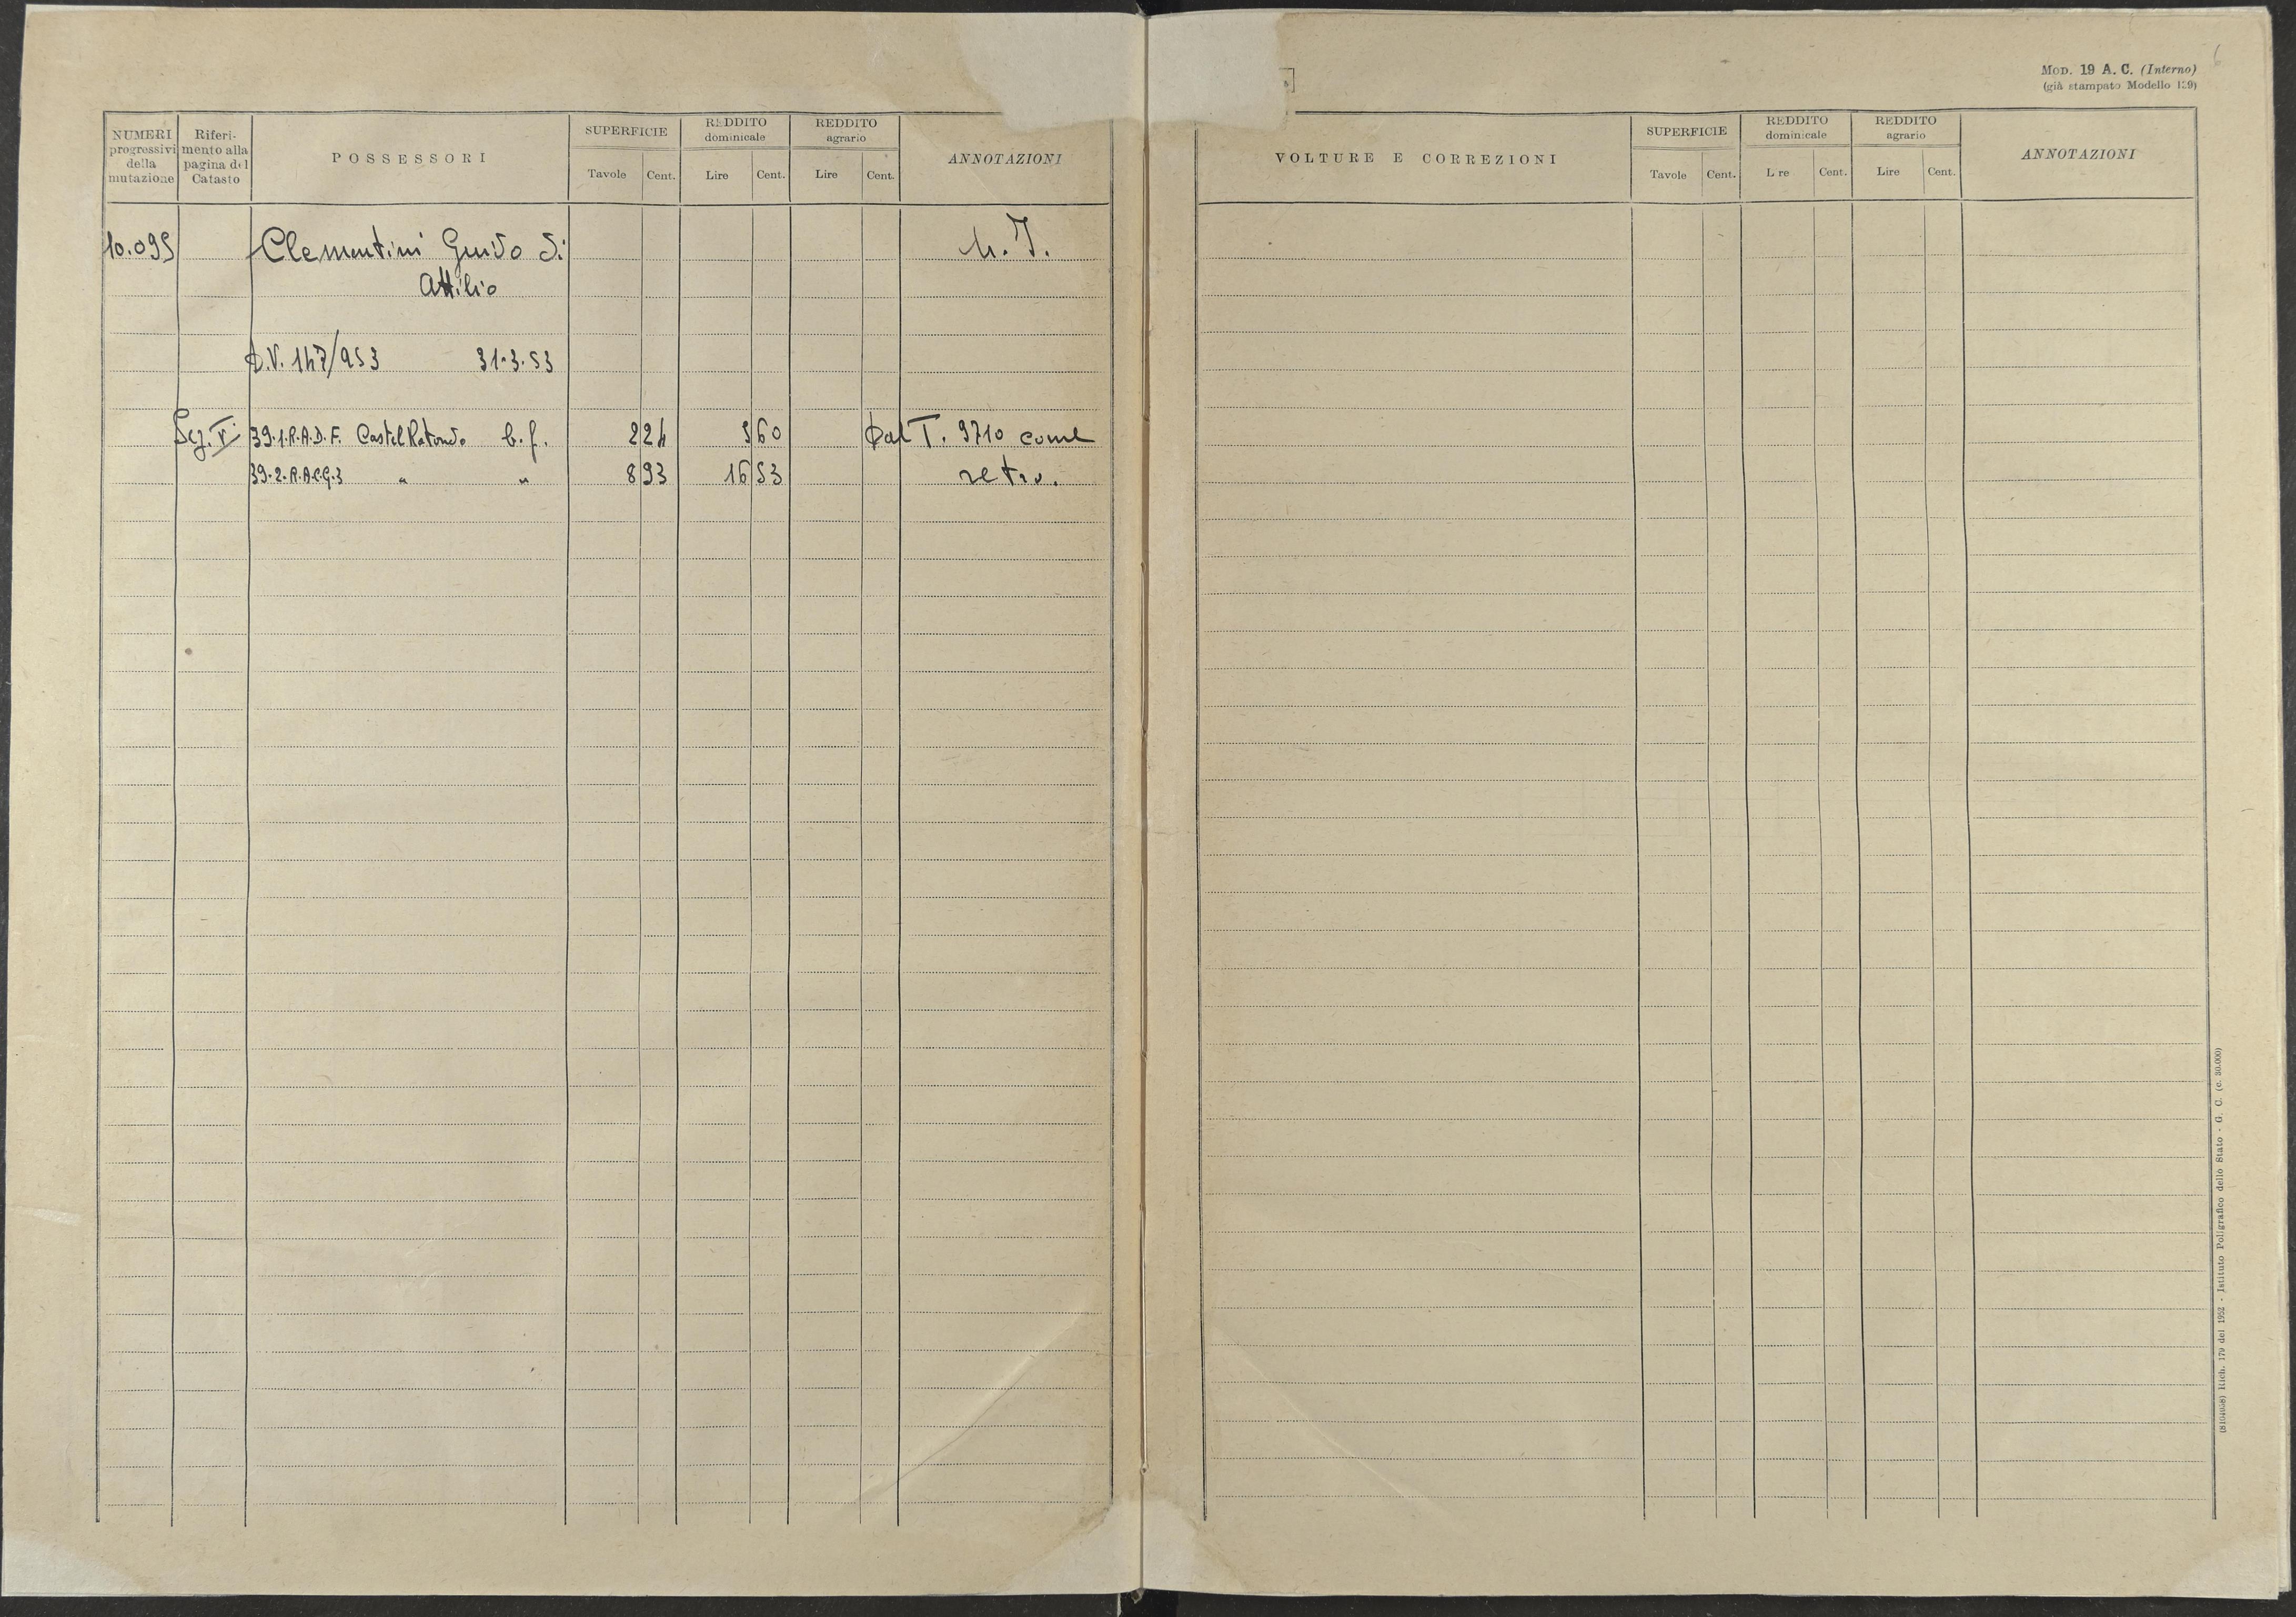 NUMERI progressivi della mutazione | Riferimento alla pagina del Catasto | POSSESSORI | SUPERFICIE Tavole Cent. | REDDITO dominicale Lire Cent. | REDDITO agrario Lire Cent. | ANNOTAZIONI
10.095 Clementini Guido di
Attilio
D.V. 147/953 31.3.53
Sez. V 39.1.R.A.D.F. Castel Rotondo b.f. 2 24 5 60 Dal T. 9710 come
39.2.R.A.C.G.3 " " 8 93 16 53 retro.
MOD. 19 A. C. (Interno)
(già stampato Modello 139)
VOLTURE E CORREZIONI | SUPERFICIE Tavole Cent. | REDDITO dominicale L re Cent. | REDDITO agrario Lire Cent. | ANNOTAZIONI
Rich. 170 del 1952 - Istituto Poligrafico dello Stato - G. C. (c. 30.000)